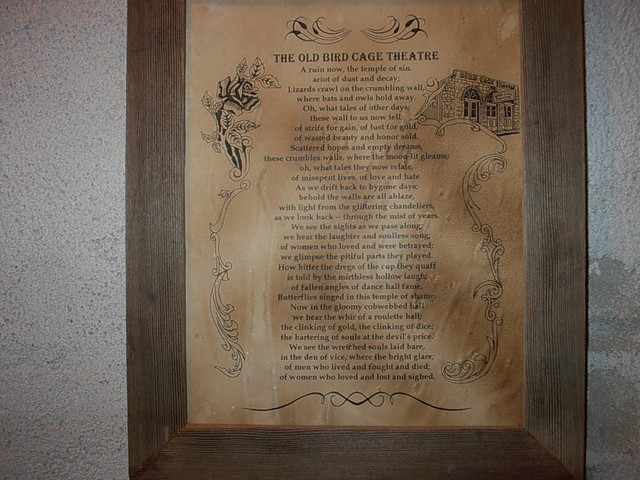 THE OLD BIRD CAGE THEATRE
A ruin now, the temple of sin.
ariot of dust and decay;
Lizards crawl on the crumbling wall,
where bats and owls hold away.
Oh, what tales of other days;
these wall to us now tell,
of strife for gain, of lust for gold,
of wasted beauty and honor sold.
Scattered hopes and empty dreams,
these crumbles walls, where the moon-lit gleams;
oh, what tales they now relate,
of misspent lives, of love and hate.
As we drift back to bygone days;
behold the walls are all ablaze,
with light from the glittering chandeliers,
as we look back -- through the mist of years.
We see the sights as we pass along;
we hear the laughter and soulless song;
of women who loved and were betrayed;
we glimpse the pitiful parts they played.
How bitter the dregs of the cup they quaff
is told by the mirthless hollow laugh;
of fallen angles of dance hall fame,
Butterflies singed in this temple of shame.
Now in the gloomy cobwebbed hall
we hear the whir of a roulette ball;
the clinking of gold, the clinking of dice;
the bartering of souls at the devil's price.
We see the wretched souls laid bare,
in the den of vice, where the bright glare;
of men who lived and fought and died;
of women who loved and lost and sighed.